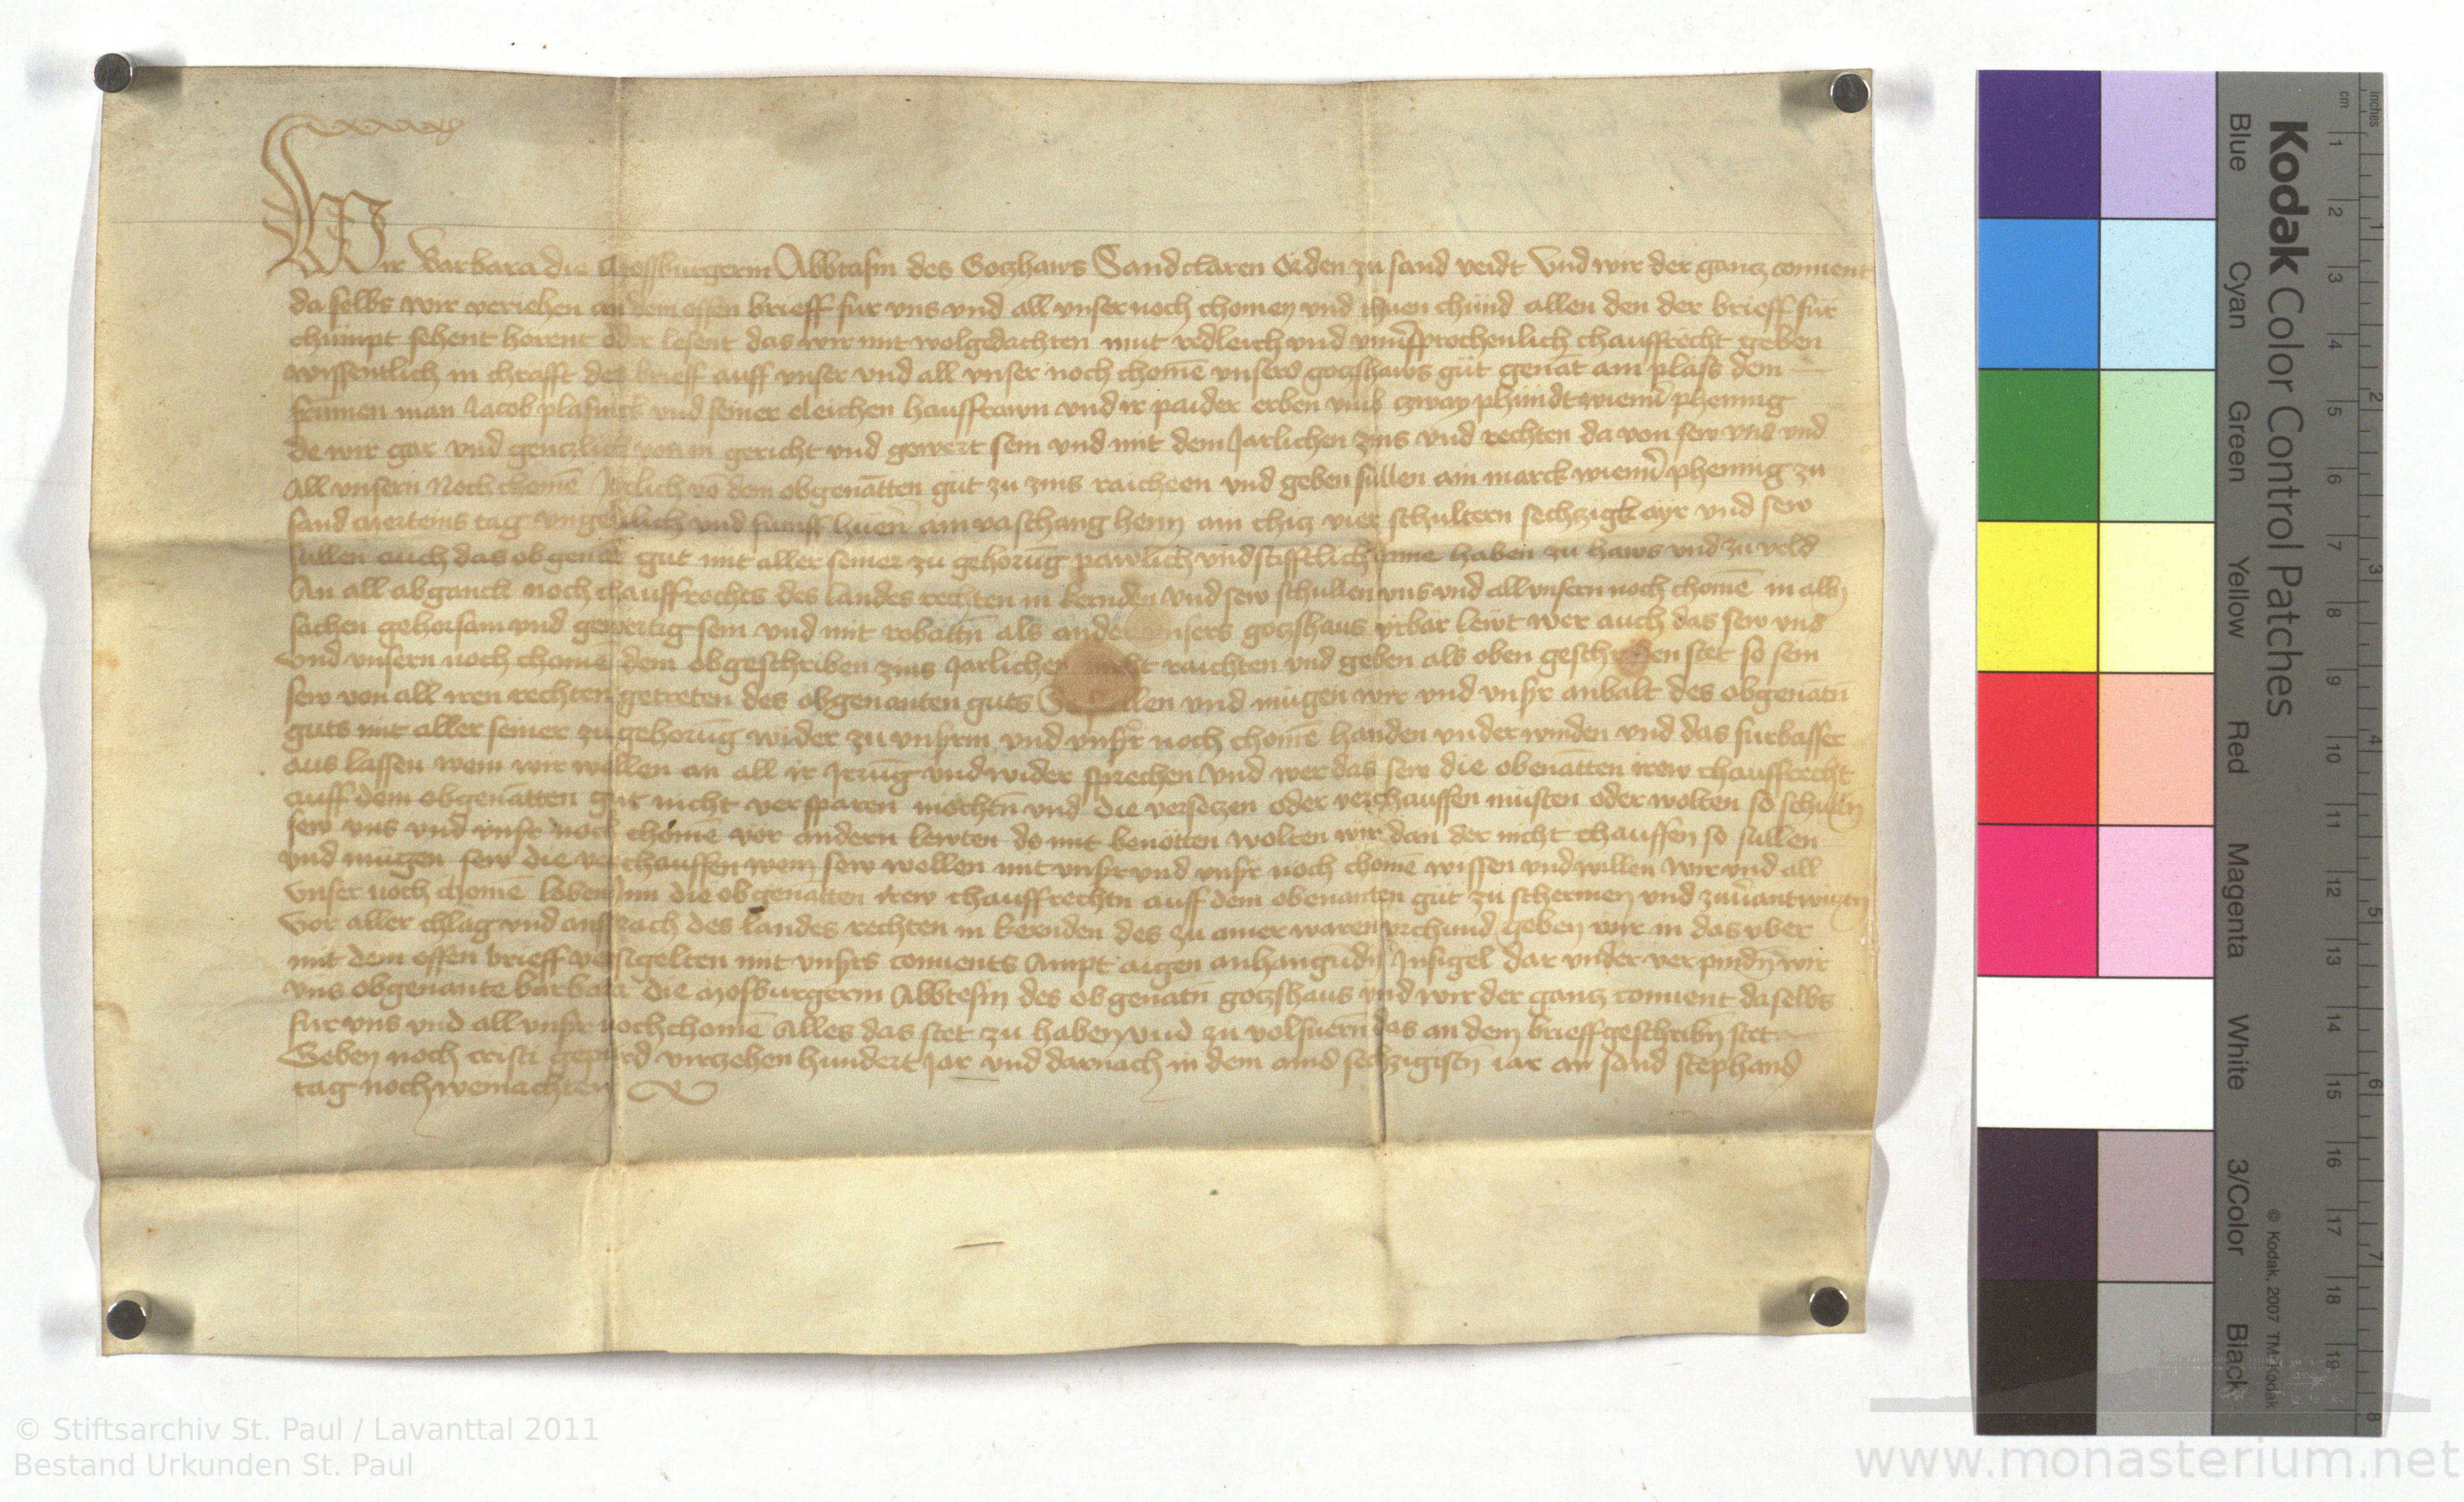 Wir Barbara die Mossburgerin Abbtasin des Gotzhaws Sand claren Orden zu sand veidt Und wir der gantz conuent
da selbs wir veriehen an dem offen brieff fur vns vnd all vnser noch chomen vnd thuen chund allen den der brieff für
chumpt sehent horent oder lesent das wir mit wolgedachten mut redleich vnd vnuersprochenlich chauffrecht geben
wissentlich in chrafft des brieff auff vnser vnd all vnser noch chomē vnsers gotzshaws güt genāt am plass dem
frumen man Jacob plasnick vnd seiner eleichen hausfrawn vnd ir paider erben vmb zway phundt wienn̄ phennig
de wir gar vnd gentzlich von in gericht vnd gewert sein vnd mit dem Jarlichen zins vnd rechten da von sew vns vnd
All vnsern Noch chomē Järlich vō dem obgenātten güt zu zins raicheen vnd geben sullen ain marck wienn̄ phennig zu
sand merteins tag vngeuerlich vnd funff huen̄ ain vaschang henn ain chicz vier schultern sechzigk ayr vnd sew
sullen auch das obgenāt gut mit aller seiner zu gehorūg pawlich vnd stifftlich inne haben zu haws vnd zu veld
An all abganck noch chauffrechts des landes rechten in kernden vnd sew schullen vns vnd all vnsern noch chomē in alln
sachen gehorsam vnd gewertig sein vnd mit robattn̄ als ander vnsers gotzshaus vrbar lewt wer auch das sew vns
vnd vnsern noch chomē dem obgeschriben zins Jarlichen nicht raichten vnd geben als oben geschriben stet so sein
sew von all iren rechten getreten des obgenanten guts So sullen vnd mügen wir vnd vnsr anbalt des obgenātn̄
guts mit aller seiner zu gehorūg wider zu vnsern vnd vnsr noch chomē handen vnderwinden vnd das furbasser
aus lassen wem wir wellen an all ir Jrrūg vnd wider sprechen Vnd wer das sew die obenātten irew chauffrecht
auff dem obgenātten gut nicht versparen mochtn̄ vnd die versetzen oder verchauffen müsten oder wolten so schulln
sew vns vnd vnsr noch chomē vor andern lewten do mit benötten wolten wir dan der nicht chauffen so sullen
vnd mügen sew die verchauffen wem sew wellen mit vnsr vnd vnsr noch chomē wissen vnd willen Wir vnd all
vnser noch chomē loben Jnn die obgenātten irew chauffrechtn auff dem obenanten güt zu schermen vnd zuuerantwurtn
Vor aller chlag vnd ansprach des landes rechten in kernden des zu ainer waren vrchund geben wir in das vber
mit dem offen brieff versigelten mit vnsrs conuents Ampt aigen anhangūdn Jnsigel dar vnder verpindn̄ wir
vns obgenante barbara die mosburgerin Abbtesin des obgenātn̄ gotzshaus vnd wir der gantz conuent daselbs
fur vns vnd all vnsr noch chomē Alles das stet zu haben vnd zu volfuern̄ das an dem brieff geschribn stet
Geben noch cristi gepurd virczehen hundert Jar vnd darnach in dem aind sechzigistn iar an sand stephans
tag noch weinachten
Kodak Color Control Patches
Blue Cyan Green Yellow Red Magenta White 3/Color Black
© Kodak, 2007 TM: Kodak
cm 1 2 3 4 5 6 7 8 9 10 11 12 13 14 15 16 17 18 19
inches 1 2 3 4 5 6 7 8
© Stiftsarchiv St. Paul / Lavanttal 2011
Bestand Urkunden St. Paul
www.monasterium.net